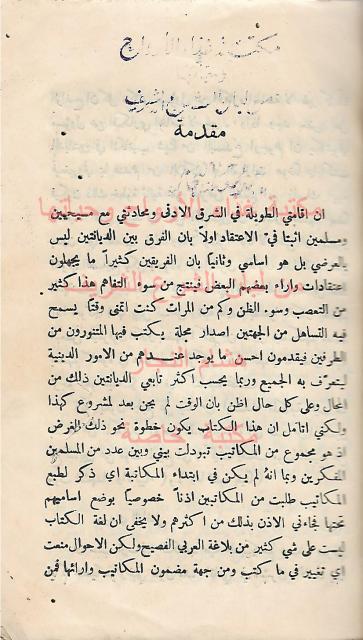 مقدمة
ان اقامتي الطويلة في الشرق الادنى ومحادثتي مع مسيحيين
ومسلمين اثبتا في الاعتقاد اولاً بان الفرق بين الديانتين ليس
بالعرضي بل هو اساسي وثانياً بان الفريقين كثيراً ما يجهلون
اعتقادات واراء بعضهم البعض فينتج من سوء التفاهم هذا كثير
من التعصب وسوء الظن وكم من المرات كنت اتمنى وقتاً يسمح
فيه التساهل من الجهتين اصدار مجلة يكتب فيها المتنورون من
الطرفين فيقدمون احسن ما يوجد عندهم من الامور الدينية
ليتعرف به الجميع وربما يحسب اكثر تابعي الديانتين ذلك من
المحال وعلى كل حال اظن بان الوقت لم يحن بعد لمشروع كهذا
ولكني اتامل ان هذا الكتاب يكون خطوة نحو ذلك الغرض
اذ هو مجموع من المكاتيب تبودلت بيني وبين عدد من المسلمين
المفكرين وبما انه لم يكن في ابتداء المكاتبة اي ذكر لطبع
المكاتيب طلبت من المكاتبين اذناً خصوصياً بوضع اساميهم
تحتها فجاءني الاذن بذلك من اكثرهم ولا يخفى ان لغة الكتاب
ليست على شي كثير من بلاغة العربي الفصيح ولكن الاحوال منعت
اي تغيير في ما كتب ومن جهة مضمون المكاتيب وارائها فمن
مكتبة
هشام النجار
مكتبة خاصة